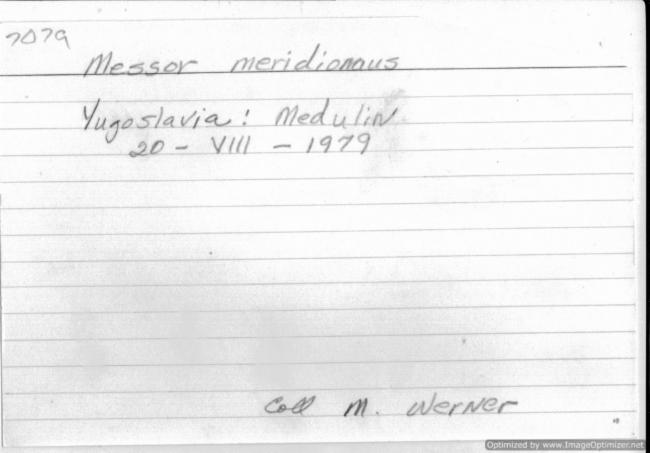 7079
Messor meridionaus
Yugoslavia: Medulin
20 - VIII - 1979
Coll M. Werner
Optimized by www.ImageOptimizer.net